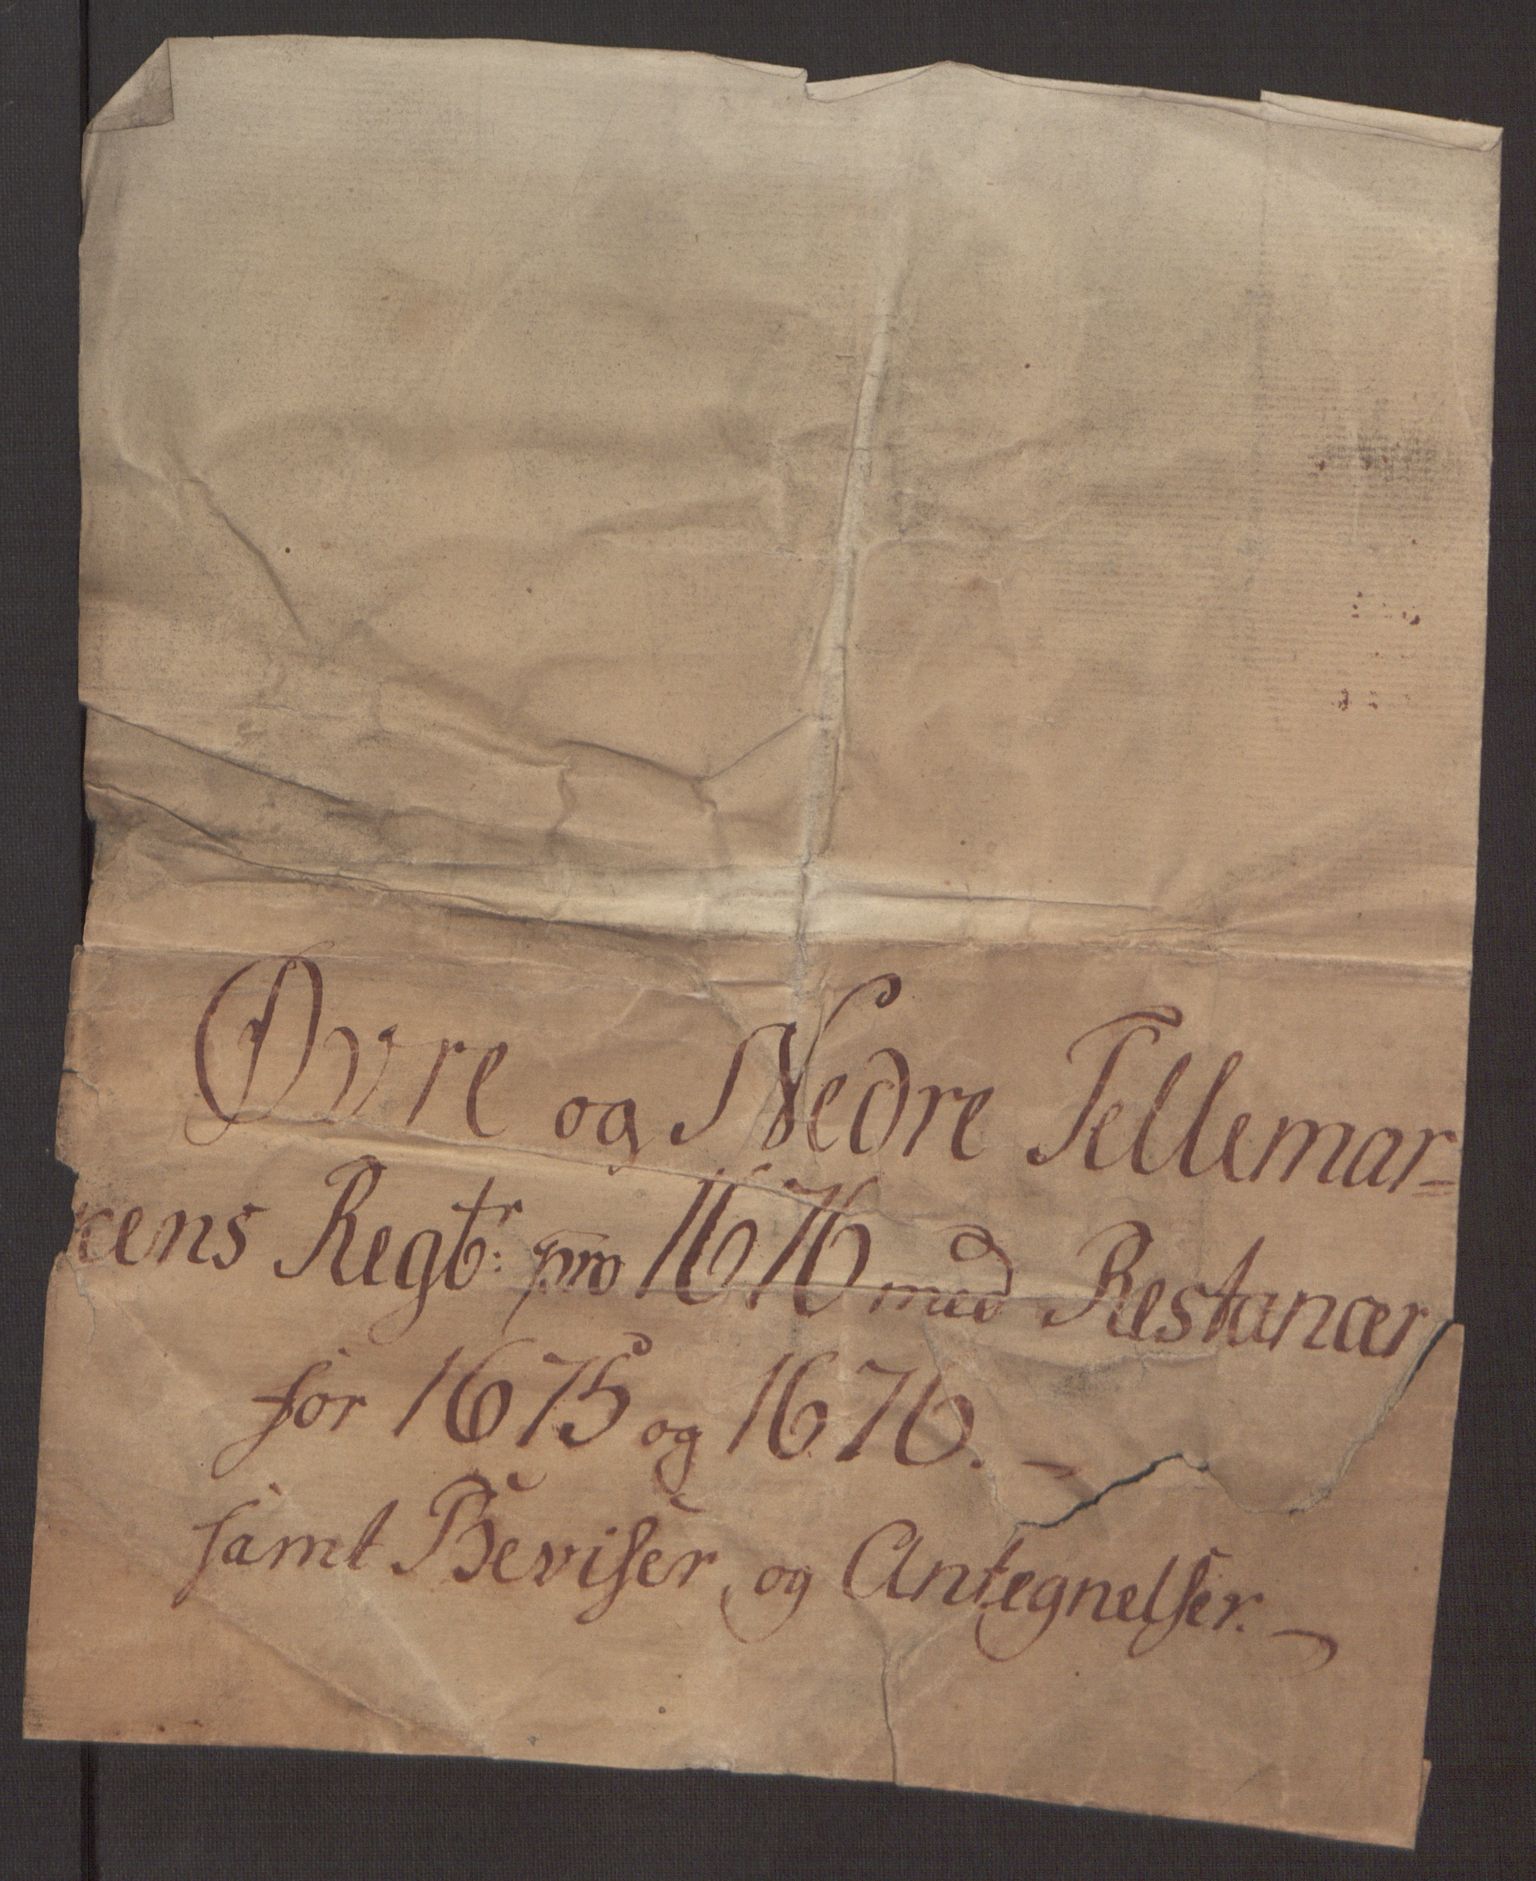 Øvre og Nedre Tellemar=
kens Regtr: pro 1676 med Restancer
for 1675 og 1676. —
samt Beviser, og Antegnelser. —